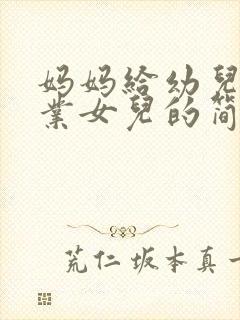 妈妈给幼兒
業女兒的简
荒仁坂本真一